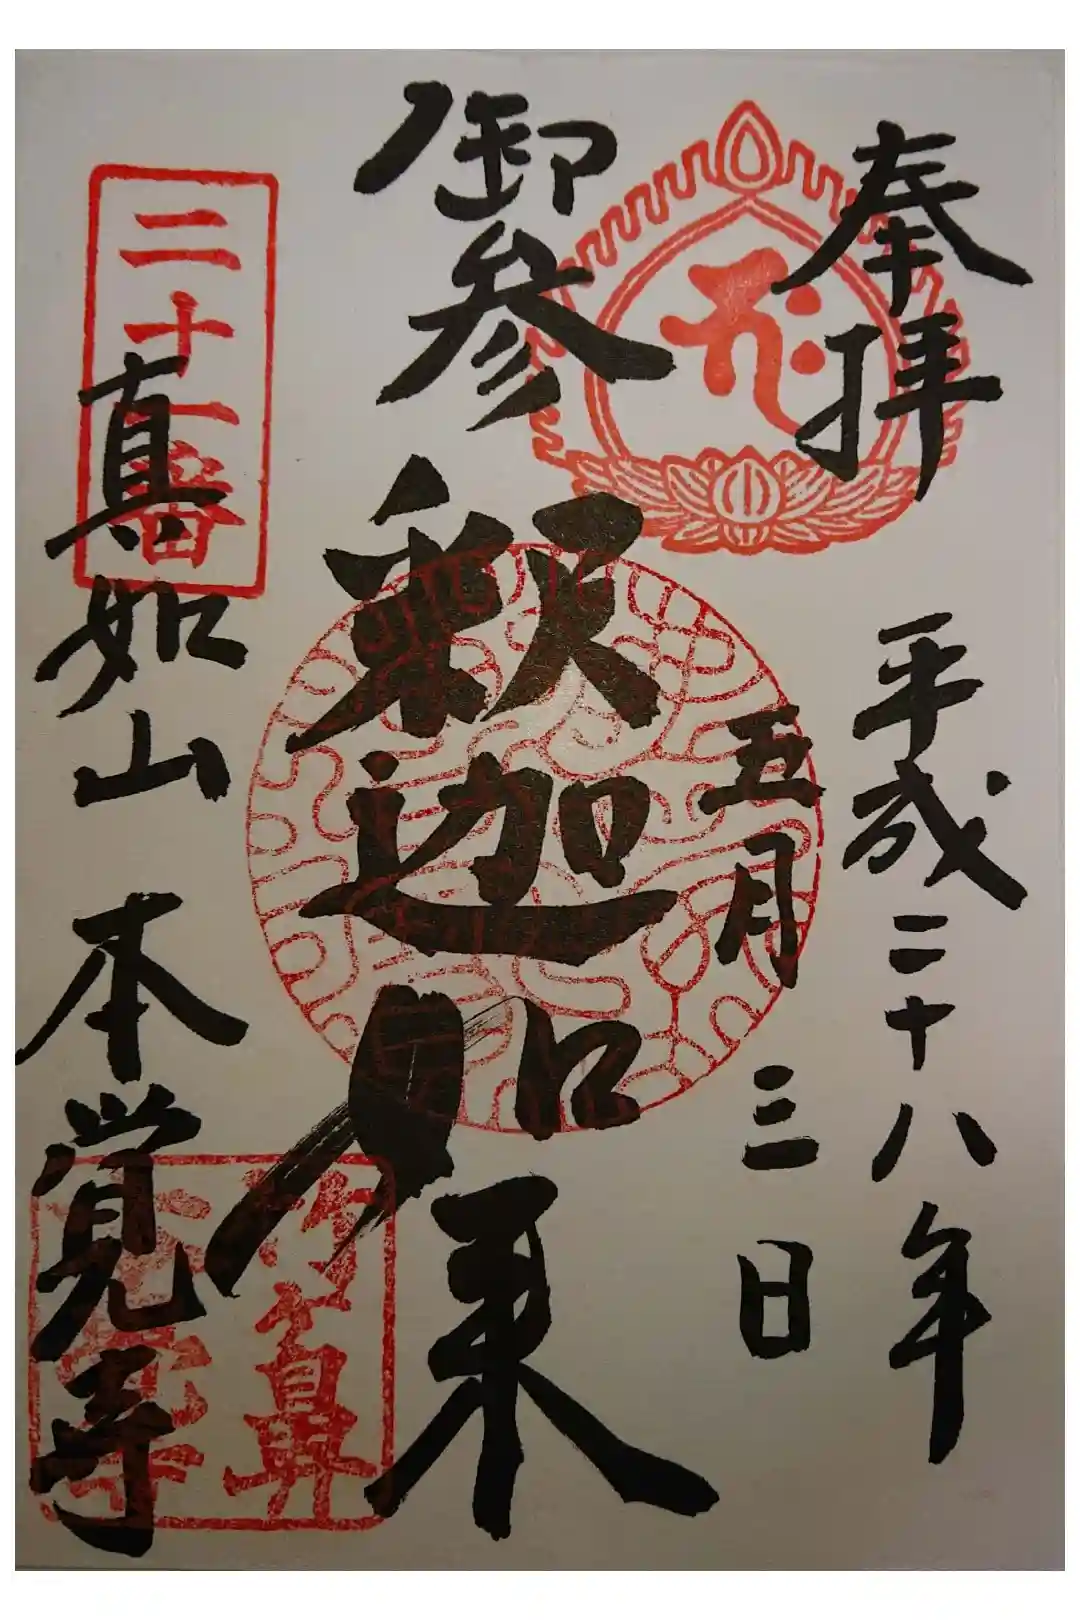 奉拝
平成二十八年
五月三日
御参
釈迦如来
二十一番
真如山 本覚寺